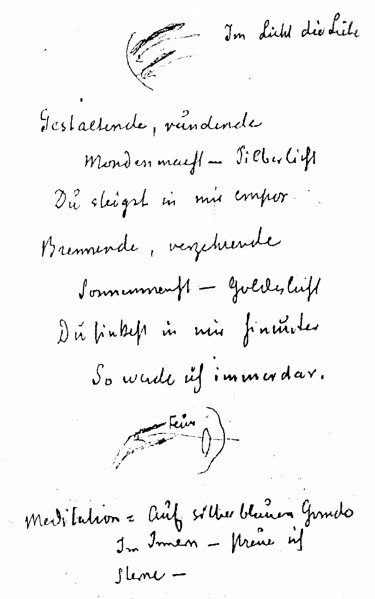 Im Licht die Liebe
Gestaltende, ründende
Mondenmacht – Silberlicht
Du steigst in mir empor
Brennende, verzehrende
Sonnenmacht – Goldeslicht
Du sinkest in mir hinunter
So werde ich immerdar.
Meditation = Auf silberblauem Grunde
Im Innern – streue ich
Sterne –